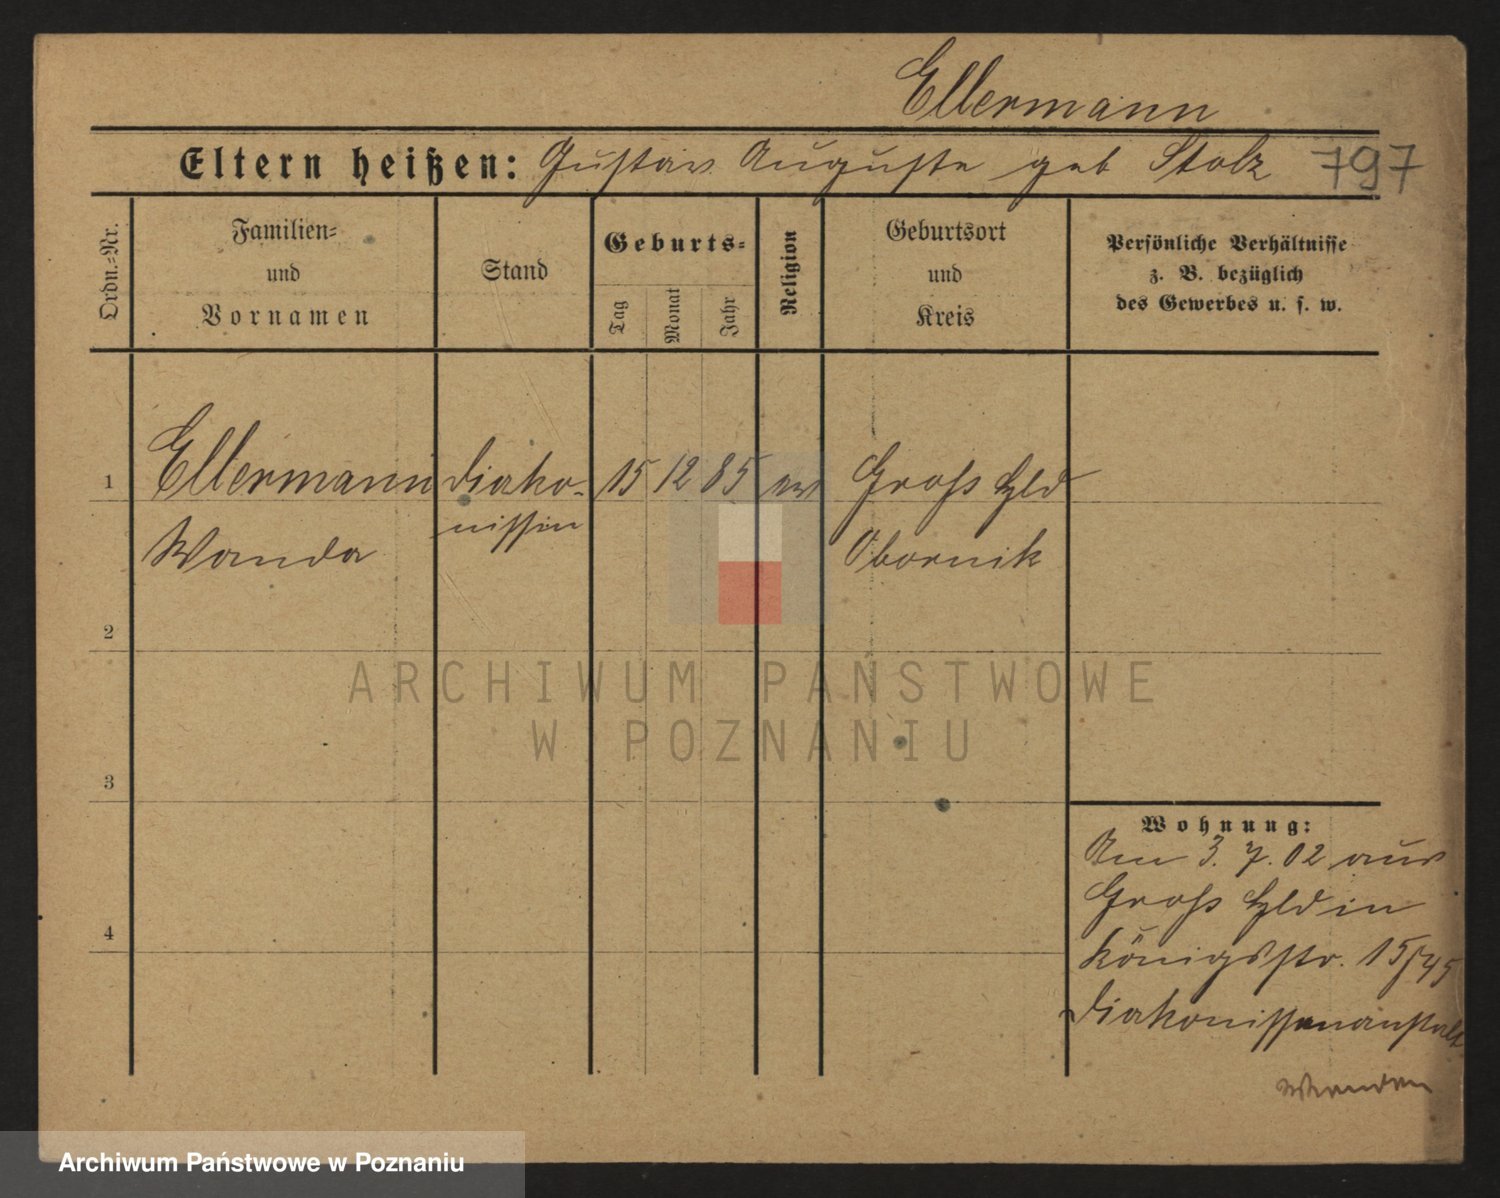 Ellermann
Eltern heißen: Gustav Auguste geb Stolz 797
Ordn.-Nr.
Familien-
und
Vornamen
Stand
Geburts-
Tag
Monat
Jahr
Religion
Geburtsort
und
Kreis
Persönliche Verhältnisse
z. B. bezüglich
des Gewerbes u. s. w.
1 Ellermann Diako- 15 12 85 ev Gross Hld
nissin
Wanda Obornik
2
ARCHIWUM PAŃSTWOWE
W POZNANIU
3
Wohnung:
Am 3. 7. 02 aus
Gross Hld in
4
Königsstr. 15/
Diakonissenanstalt
Wenden
Archiwum Państwowe w Poznaniu